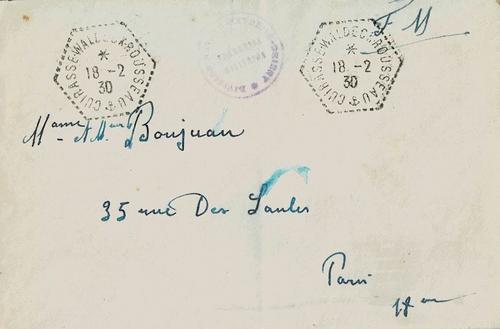 CUIRASSE-WALDECK-ROUSSEAU
18 -2
30
CUIRASSE-WALDECK-ROUSSEAU
18 -2
30
F M
Mame Boujuan
35 rue Des Saules
Paris
18 em